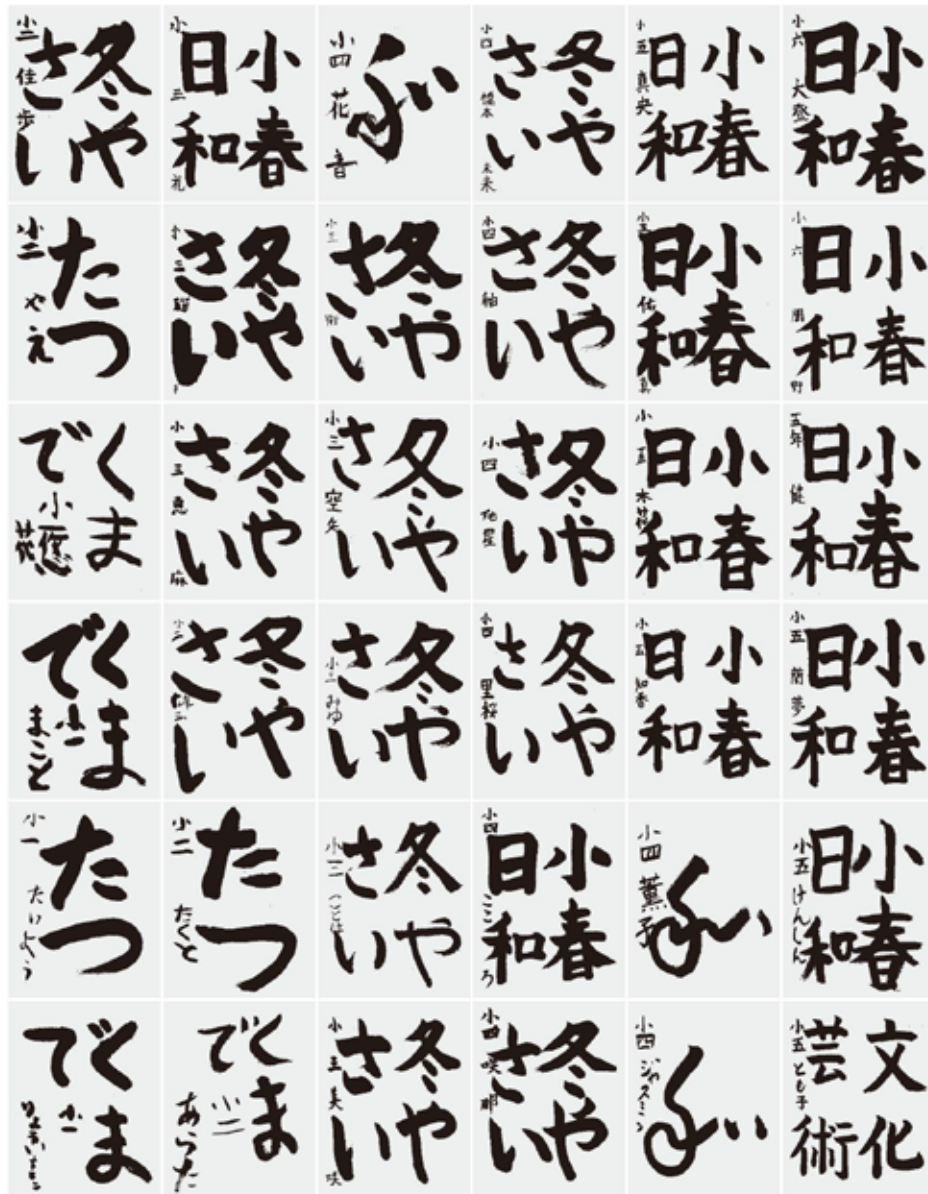 冬や
さい
小二 佳歩
小春
日和
小三 礼
小四 花音
冬や
さい
小四 未来
小春
日和
小五 真央
小春
日和
小六 大登
たつ
小二 やえ
冬や
さい
小三
冬や
さい
小三
冬や
さい
小四
小春
日和
小五 佑真
小春
日和
小六
くま
で
小一
冬や
さい
小三 恵麻
冬や
さい
小三
冬や
さい
小四
小春
日和
小五
小春
日和
五年 健
くま
で
小一
まこと
冬や
さい
冬や
さい
小三 みゆ
冬や
さい
小四 里桜
小春
日和
小五 知春
小春
日和
小五 蘭夢
たつ
小一 たいよう
たつ
小二 たくと
冬や
さい
小三 ことは
小春
日和
小四 こころ
小四 薫子
小春
日和
小五 けんしん
くま
で
小一
くま
で
小二
あらた
冬や
さい
小三 美咲
冬や
さい
小四 咲那
小四 ジャスミン
文化
芸術
小五 とも子